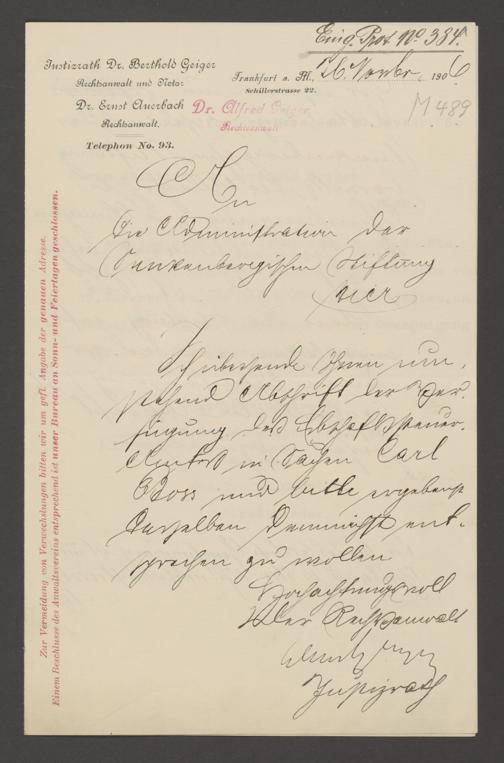 Eing. Prot. No 384.
Justizrath Dr. Berthold Geiger
Rechtsanwalt und Notar
Dr. Ernst Auerbach
Rechtsanwalt.
Telephon No. 93.
Dr. Alfred Geiger
Rechtsanwalt
Frankfurt a. M., 26 Novbr. 1906
Schillerstrasse 22.
M 489
An
die Administration der
Senkenbergischen Stiftung
hier
Ich übersende Ihnen um-
stehend Abschrift der Ver-
fügung des Erbschaftssteuer-
Amtes in Sachen Carl
und bitte ergebenst
derselben demnächst ent-
sprechen zu wollen
Hochachtungsvoll
Der Rechtsanwalt
Justizrath
Zur Vermeidung von Verwechslungen bitten wir um gefl. Angabe der genauen Adresse.
Einem Beschlusse des Anwaltsvereins entsprechend ist unser Bureau an Sonn- und Feiertagen geschlossen.